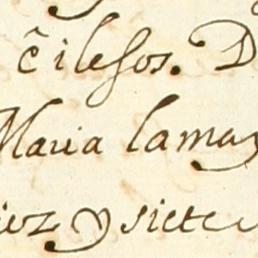 c̃ ilesos. D
Maria lamay
iez y siete